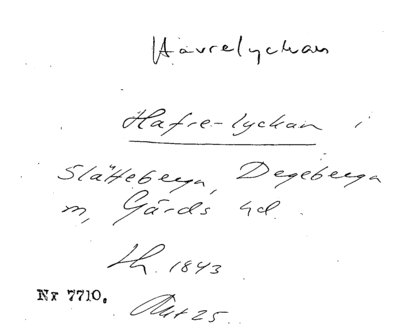 Havrelyckan
Hafre-lyckan i
Slätteberga, Degeberga
m, Gärds hd.
Lh. 1843
Nr 7710.
Akt 25